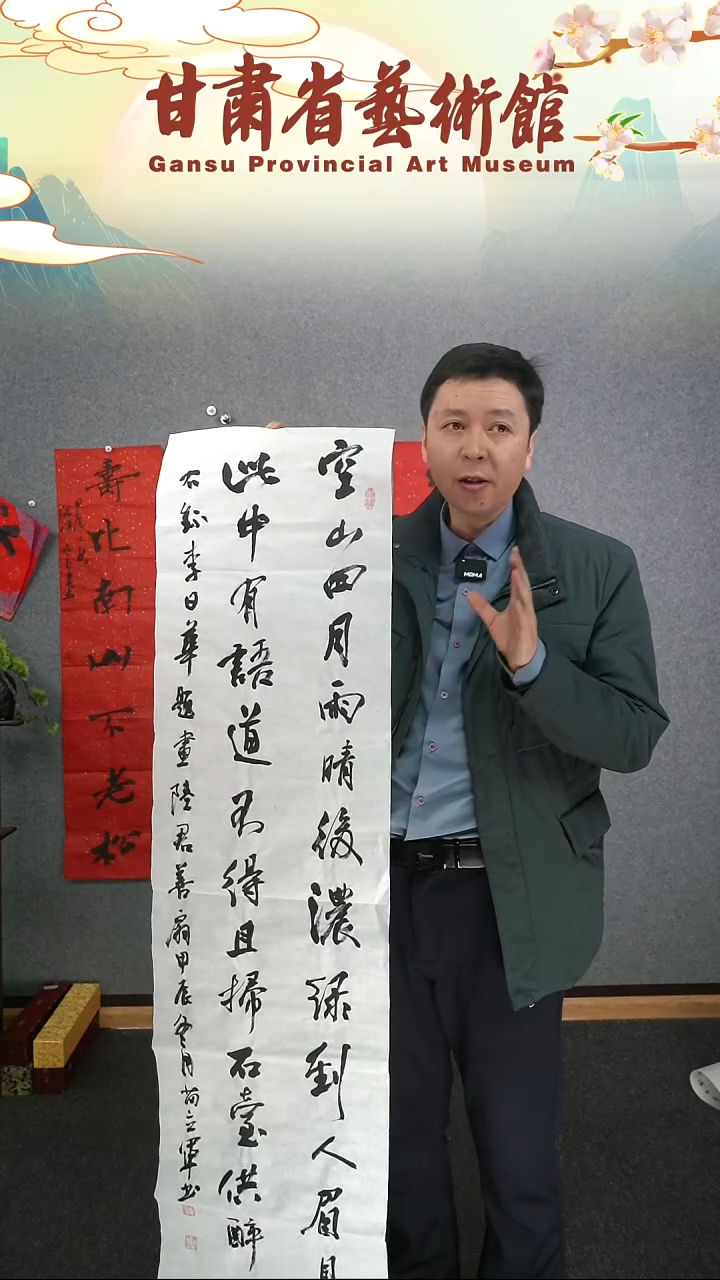 甘肅省藝術館
Gansu Provincial Art Museum
空山四月雨晴後濃綠到人眉目
此中有語道不得且掃石臺供醉
右錄李日華題畫陸君善扇甲辰冬月苟立軍书
壽比南山不老松
MOMA